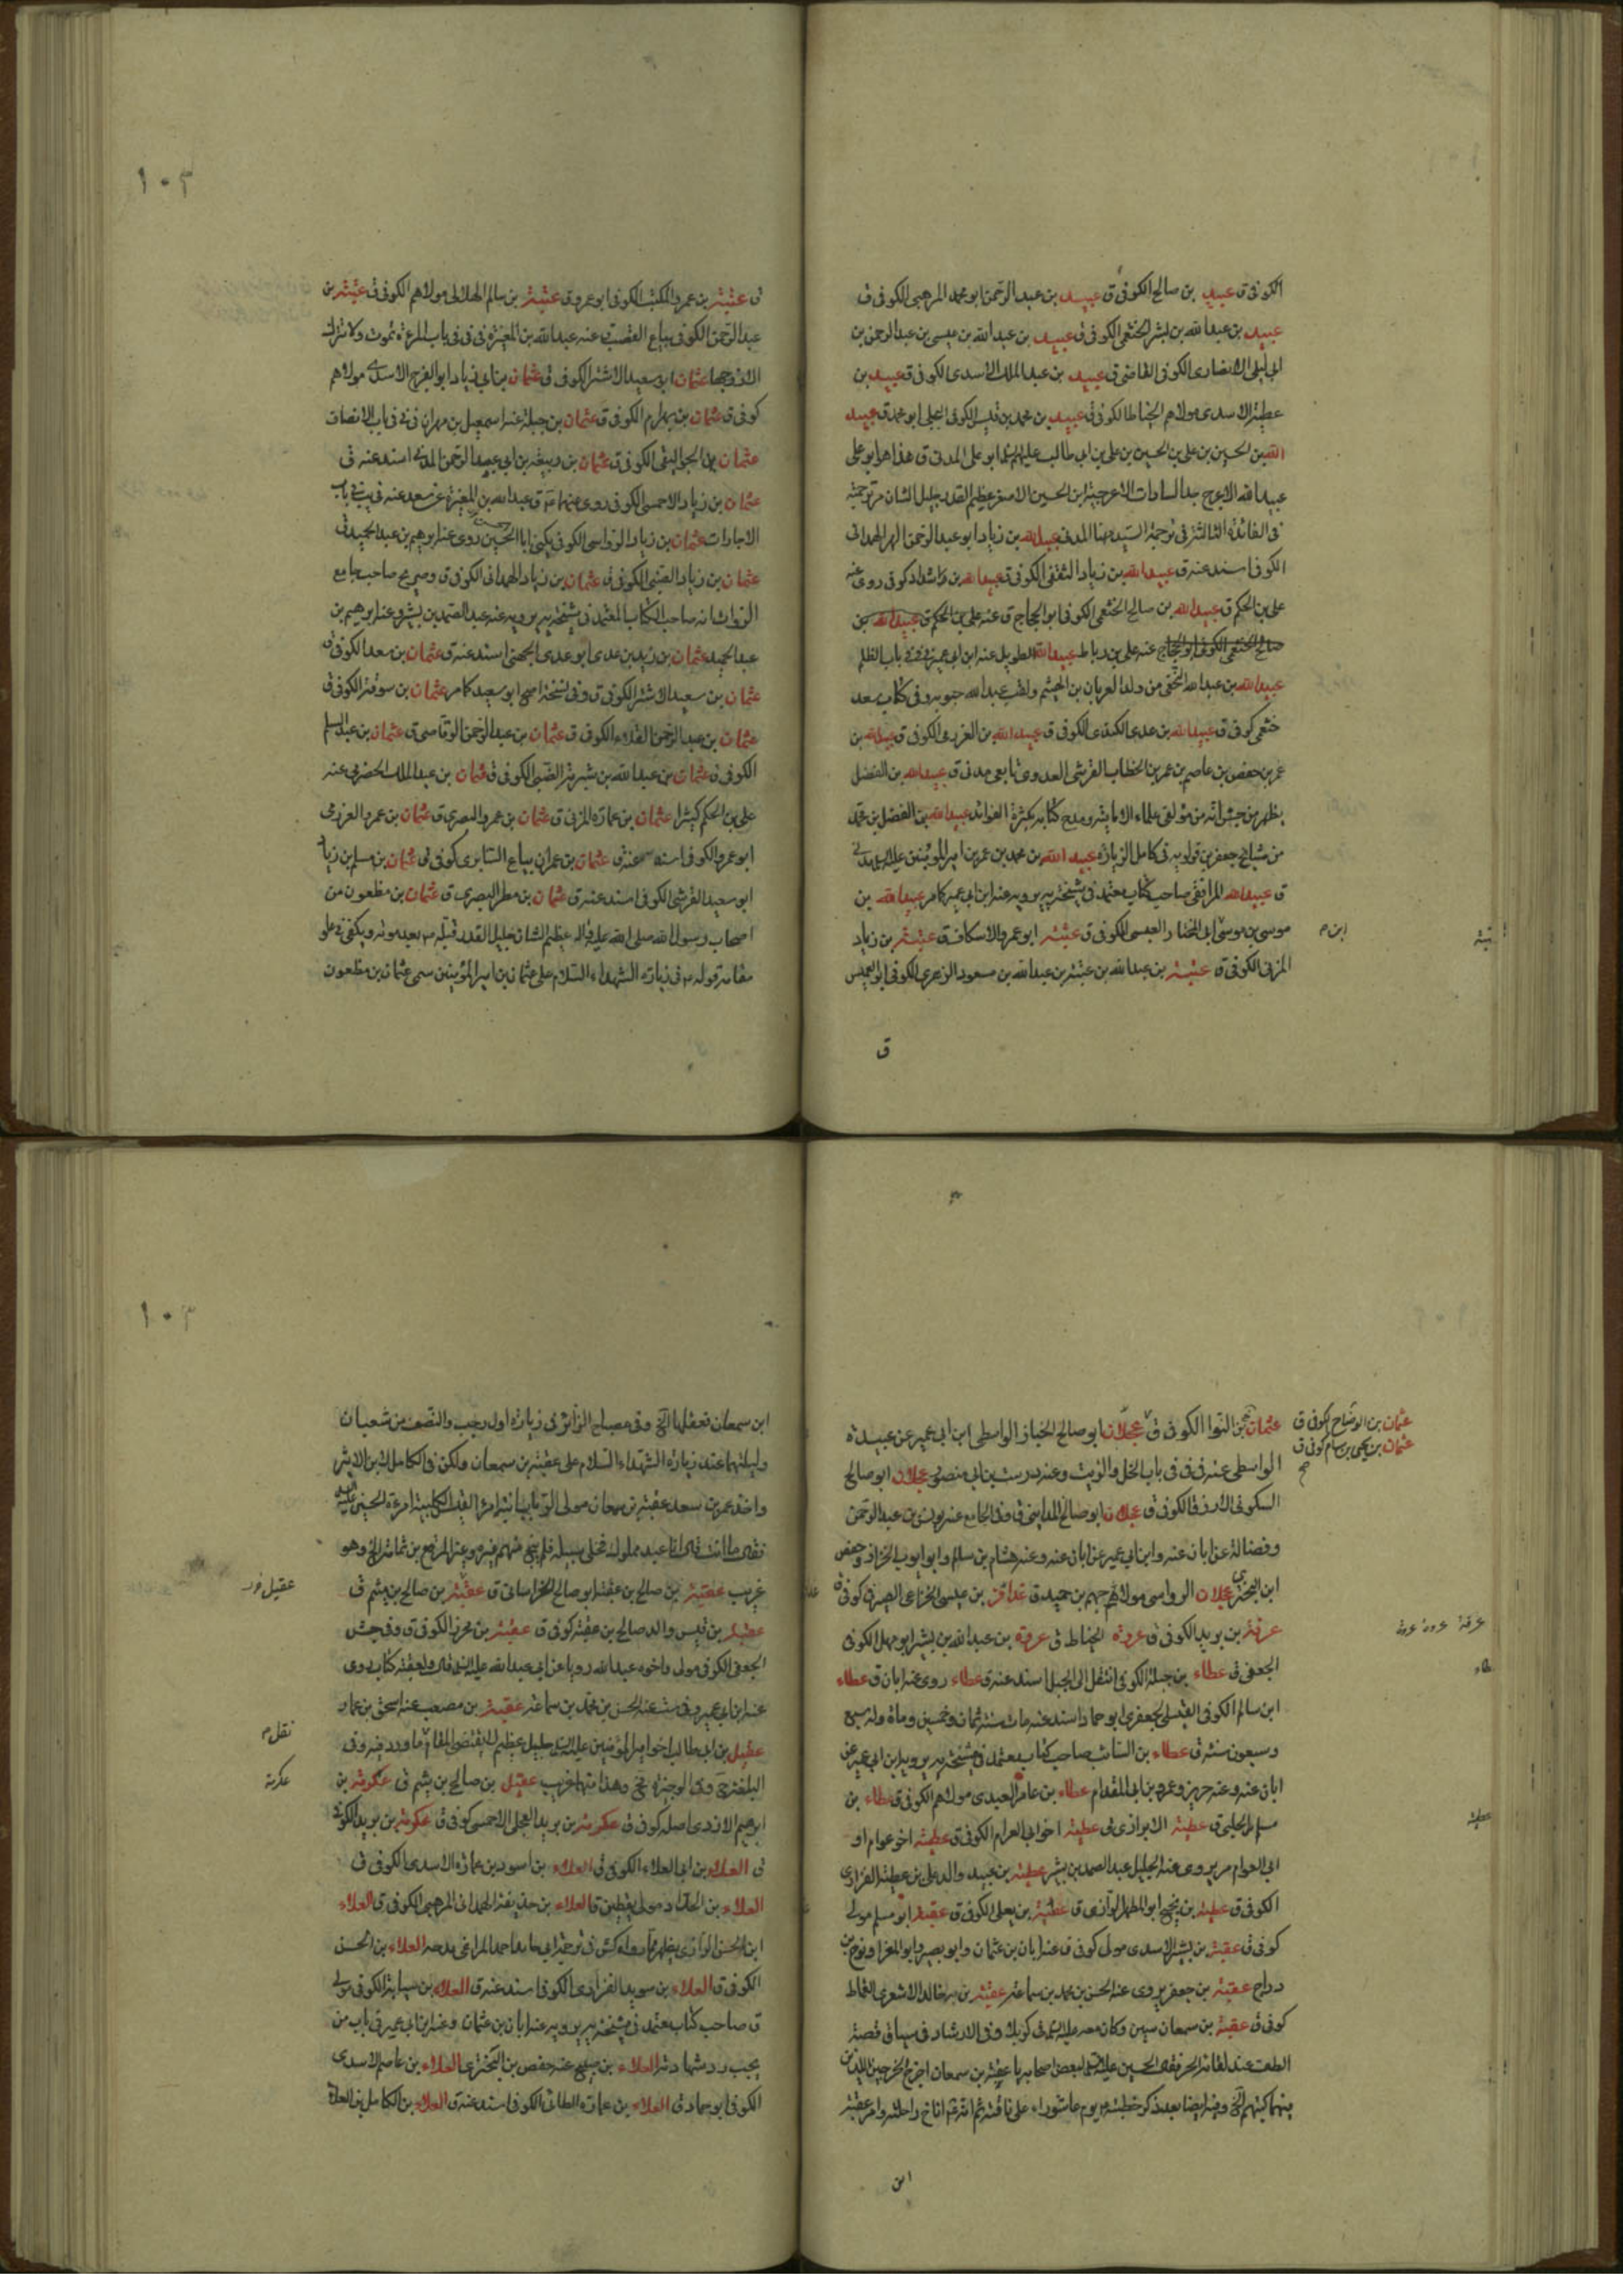 الكوفى ق عبيد بن صالح الكوفى ق عبيد بن عبد الرحمن ابو محمد المرهبى الكوفى ق
عبيد بن عبد الله بن بشر الخثعمى الكوفى ق عبيد بن عبد الله بن عيسى بن عبد الرحمن بن
ابى ليلى الانصارى الكوفى القاضى ق عبيد بن عبد الملك الاسدى الكوفى ق عبيد بن
عطية الاسدى مولاهم الخياط الكوفى ق عبيد بن محمد بن قيس الكوفى البجلى ابو محمد ق عبيد
الله بن الحسين بن على بن الحسين بن على بن ابى طالب عليهم السلام ابو على المدنى ق هذا هو ابو على
عبيد الله الاعرج جد السادات الاعرجية ابن الحسين الاصغر عظيم القدر جليل الشان مر ترجمته
فى الفائدة الثالثة فى ترجمة السيد مهنا المدنى عبيد الله بن زياد ابو عبد الرحمن الهمدانى
الكوفى اسند عنه ق عبيد الله بن زياد الثقفى الكوفى ق عبيد الله بن راشد كوفى روى عنه
على بن الحكم ق عبيد الله بن صالح الخثعمى الكوفى ابو الحجاج ق عنه على بن الحكم ق عبيد الله بن
صالح الخثعمى الكوفى ابو الحجاج عنه على بن رباط عبيد الله الطويل عنه ابن ابى عمير فى فى باب الظلم
عبيد الله بن عبد الله النخعى من ولد العريان بن الهيثم ولقب عبد الله وفى كتاب سعد
خثعمى كوفى ق عبيد الله بن عدى الكندى الكوفى ق عبيد الله بن العرزمى الكوفى ق عبيد الله بن
عمر بن حفص بن عاصم بن عمر بن الخطاب القرشى العدوى تابعى مدنى ق عبيد الله بن الفضل
يظهر من جش انه من مؤلفى علماء الامامية ومدح كتابه بكثرة الفوائد عبيد الله بن الفضل بن محمد
من مشايخ جعفر بن قولويه فى كامل الزيارة عبيد الله بن محمد بن عمر بن امير المؤمنين عليه السلام
ق عبيد الله المرافقى صاحب كتاب معتمد فى مشيخة يه يرويه عنه ابن ابى عمير كما مر عبيد الله بن
موسى بن موسى ابى المختار العبسى الكوفى ق عتيبة ابو عمرو الاسكاف ق عتيبة بن زياد
المزنى الكوفى ق عتيبة بن عبد الله بن عتبة بن عبد الله بن مسعود الزهرى الكوفى ابو العميس
ق
ابن م
١٠٢
ق عتيبة بن عمرو المكتب الكوفى ابو عمرو ق عتيبة بن سالم الهلالى مولاهم الكوفى ق عتيبة بن
عبد الرحمن الكوفى بياع القصب عنه عبد الله بن المغيرة فى فى باب المرءة تموت ولا تترك
الا زوجها عثمان ابو سعيد الاشتر الكوفى ق عثمان بن ابى زياد ابو الفرج الاسدى مولاهم
كوفى ق عثمان بن بهرام الكوفى ق عثمان بن جبلة عنه اسمعيل بن مهران فى فى باب الانصاف
عثمان بن الجواليقى الكوفى ق عثمان بن ربيعة بن ابى عبد الرحمن المدنى اسند عنه ق
عثمان بن زياد الاحمسى الكوفى روى عنهما ق عبد الله بن المغيرة عن سعد عنه فى باب
الاجارات عثمان بن زياد الرواسى الكوفى يكنى ابا الحسين روى عنه ابرهيم بن عبد الحميد ق
عثمان بن زياد الضبى الكوفى ق عثمان بن زياد الهمدانى الكوفى ق وصريح صاحب جامع
الرواة انه صاحب الكتاب المعتمد فى مشيخة يه يرويه عنه عبد الصمد بن بشير وعنه ابرهيم بن
عبد الحميد عثمان بن زيد بن عدى ابو عدى الجهنى اسند عنه ق عثمان بن سعد الكوفى ق
عثمان بن سعيد الاشتر الكوفى ق وفى نسخة اصح ابو سعيد كما مر عثمان بن سوقة الكوفى ق
عثمان بن عبد الرحمن الكوفى ق عثمان بن عبد الرحمن الوقاصى ق عثمان بن عبد السلم
الكوفى ق عثمان بن عبد الله بن شبرمة الضبى الكوفى ق عثمان بن عبد الملك الحضرمى عنه
على بن الحكم كثيرا عثمان بن عمارة المزنى ق عثمان بن عمرو البصرى ق عثمان بن عمرو العرزمى
ابو عمرو الكوفى اسند عنه ق عثمان بن عمران بياع السابرى كوفى ق عثمان بن مسلم بن زياد
ابو سعيد القرشى الكوفى اسند عنه ق عثمان بن مطر البصرى ق عثمان بن مظعون من
اصحاب رسول الله صلى الله عليه واله عظيم الشان جليل القدر قبله ص بعد موته ويكفى فى علو
مقامه قوله م فى زيارة الشهداء السلام على عثمان بن امير المؤمنين سمى عثمان بن مظعون
عثمان بن الوضاح الكوفى ق
عثمان بن يحيى بن سام كوفى ق
صح
عثمان بن النوا الكوفى ق عجلان ابو صالح الخباز الواسطى ابن ابى عمير عن عبيدة
الواسطى عنه فى فى باب الخل والزيت وعنه درست بن ابى منصور عجلان ابو صالح
السكونى الازرق الكوفى ق عجلان ابو صالح المدائنى ق وفى الجامع عنه يونس بن عبد الرحمن
وفضالة عن ابان عنه وابن ابى عمير عن ابان عنه وعنه هشام بن سالم وابو ايوب الخزاز وحفص
ابن البخترى عجلان الرواسى مولاهم جهم بن حميد ق عذافر بن عيسى الخزاعى الصيرفى كوفى ق
عرفة بن بويد الكوفى ق عروة الخياط ق عروة بن عبد الله بن بشير ابو مهل الكوفى
الجعفى ق عطاء بن جبلة الكوفى انتقل الى الجبل اسند عنه ق عطاء روى عنه ابان ق عطاء
ابن سالم الكوفى القيسى الجعفرى ابو حماد اسند عنه مات سنة ثمان وخمسين ومأة وله سبع
وسبعون سنة ق عطاء بن السائب صاحب كتاب معتمد فى مشيخة يه يرويه ابن ابى عمير عن
ابان عنه وعنه حريز وعمرو بن ابى المقدام عطاء بن عامر العبدى مولاهم الكوفى ق عطاء بن
مسلم الحلبى ق عطية الابزازى ق عطية اخو ابى العرام الكوفى ق عطية اخو عوام او
ابى العوام مر يروى عنه الجليل عبد الصمد بن بشير عطية بن عبيد والد على بن عطية الفزارى
الكوفى ق عطية بن نجيح ابو المطهر الرازى ق عطية بن يعلى الكوفى ق عقبة ابو مسلم مولى
كوفى ق عقبة بن بشير الاسدى مولى كوفى ق عنه ابان بن عثمان وابو بصير وابو المعزا ونوح بن
دراج عقبة بن جعفر يروى عنه الحسن بن محمد بن سماعة عقبة بن خالد الاشعرى القماط
كوفى ق عقبة بن سمعان سين وكان معه عليه السلام فى كربلا وفى الارشاد فى سياق قصة
الطف عند لقائه الحر فقال الحسين عليه السلام لبعض اصحابه يا عقبة بن سمعان اخرج الخرجين اللذين
فيهما كتبهم الخ وفيه ايضا بعد ذكر خطبته يوم عاشوراء على ناقته ثم انه ع اناخ راحلته وامر عقبة
ابن
عرفة عروة عروة
عطاء
عطية
١٠٣
ابن سمعان فعقلها الخ وفى مصباح الزائر فى زيارة اول رجب والنصف من شعبان
وليلتهما عند زيارة الشهداء السلام على عقبة بن سمعان ولكن فى الكامل لابن الاثير
واخذ عمر بن سعد عقبة بن سمعان مولى الرباب ابنة امرء القيس الكلبية امرءة الحسين عليه السلم
فقال ما انت قال انا عبد مملوك فخلى سبيله فلم ينج منهم غيره وغير المرقع بن ثمامة الخ وهو
غريب عقبة بن صالح بن عقبة ابو صالح الخراسانى ق عقبة بن صالح بن ميثم ق
عقبة بن قيس والد صالح بن عقبة كوفى ق عقبة بن محرز الكوفى ق وفى جش
الجعفى الكوفى مولى واخوه عبد الله رويا عن ابى عبد الله عليه السلم قال ولعقبة كتاب روى
عنه ابن ابى عمير وفى ست عنه الحسن بن محمد بن سماعة عقبة بن مصعب عنه اسحق بن عمار
عقيل بن ابى طالب اخو امير المؤمنين عليه السلم جليل عظيم لا يقتضى المقام ما ورد فيه وفى
البلغة ح وفى الوجيزة مح وهذا منهما غريب عقيل بن صالح بن ميثم ق عكرمة بن
ابرهيم الازدى اصله كوفى ق عكرمة بن بريد العجلى الاحمسى كوفى ق عكرمة بن بريد الكوفى
ق العلاء بن ابى العلاء الكوفى ق العلاء بن اسود بن عمارة الاسدى الكوفى ق
العلاء بن الحداد مولى يقطين ق العلاء بن حذيفة الهمدانى المرهبى الكوفى ق العلاء
ابن الحسن الرازى يظهر مما رواه كش فى ترجمة ابى حامد احمد المراغى مدحه العلاء بن الحسن
الكوفى ق العلاء بن سويد الفزارى الكوفى اسند عنه ق العلاء بن سيابة الكوفى مولى
ق صاحب كتاب معتمد فى مشيخة يه يرويه عنه ابان بن عثمان وعنه ابن ابى عمير فى باب من
يجب رد شهادته العلاء بن صبيح عنه حفص بن البخترى العلاء بن عاصم الاسدى
الكوفى ابو حماد ق العلاء بن عمارة الطائى الكوفى اسند عنه ق العلاء بن الكامل بن العلاء
عكرمة